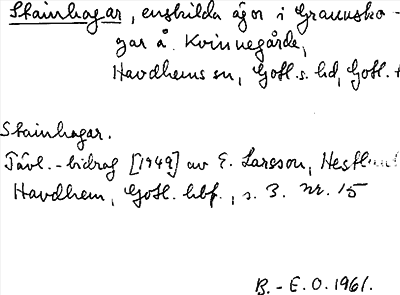 Stainhagar, enskilda ägor i Grannsko-
gar å Kvinnegårde,
Havdhems sn, Gotl. s. hd, Gotl.
Stainhagar.
Tävl.-bidrag [1949] av E. Larsson,
Havdhem, Gotl. hbf., s. 3. nr. 15
B.-E.O. 1961.